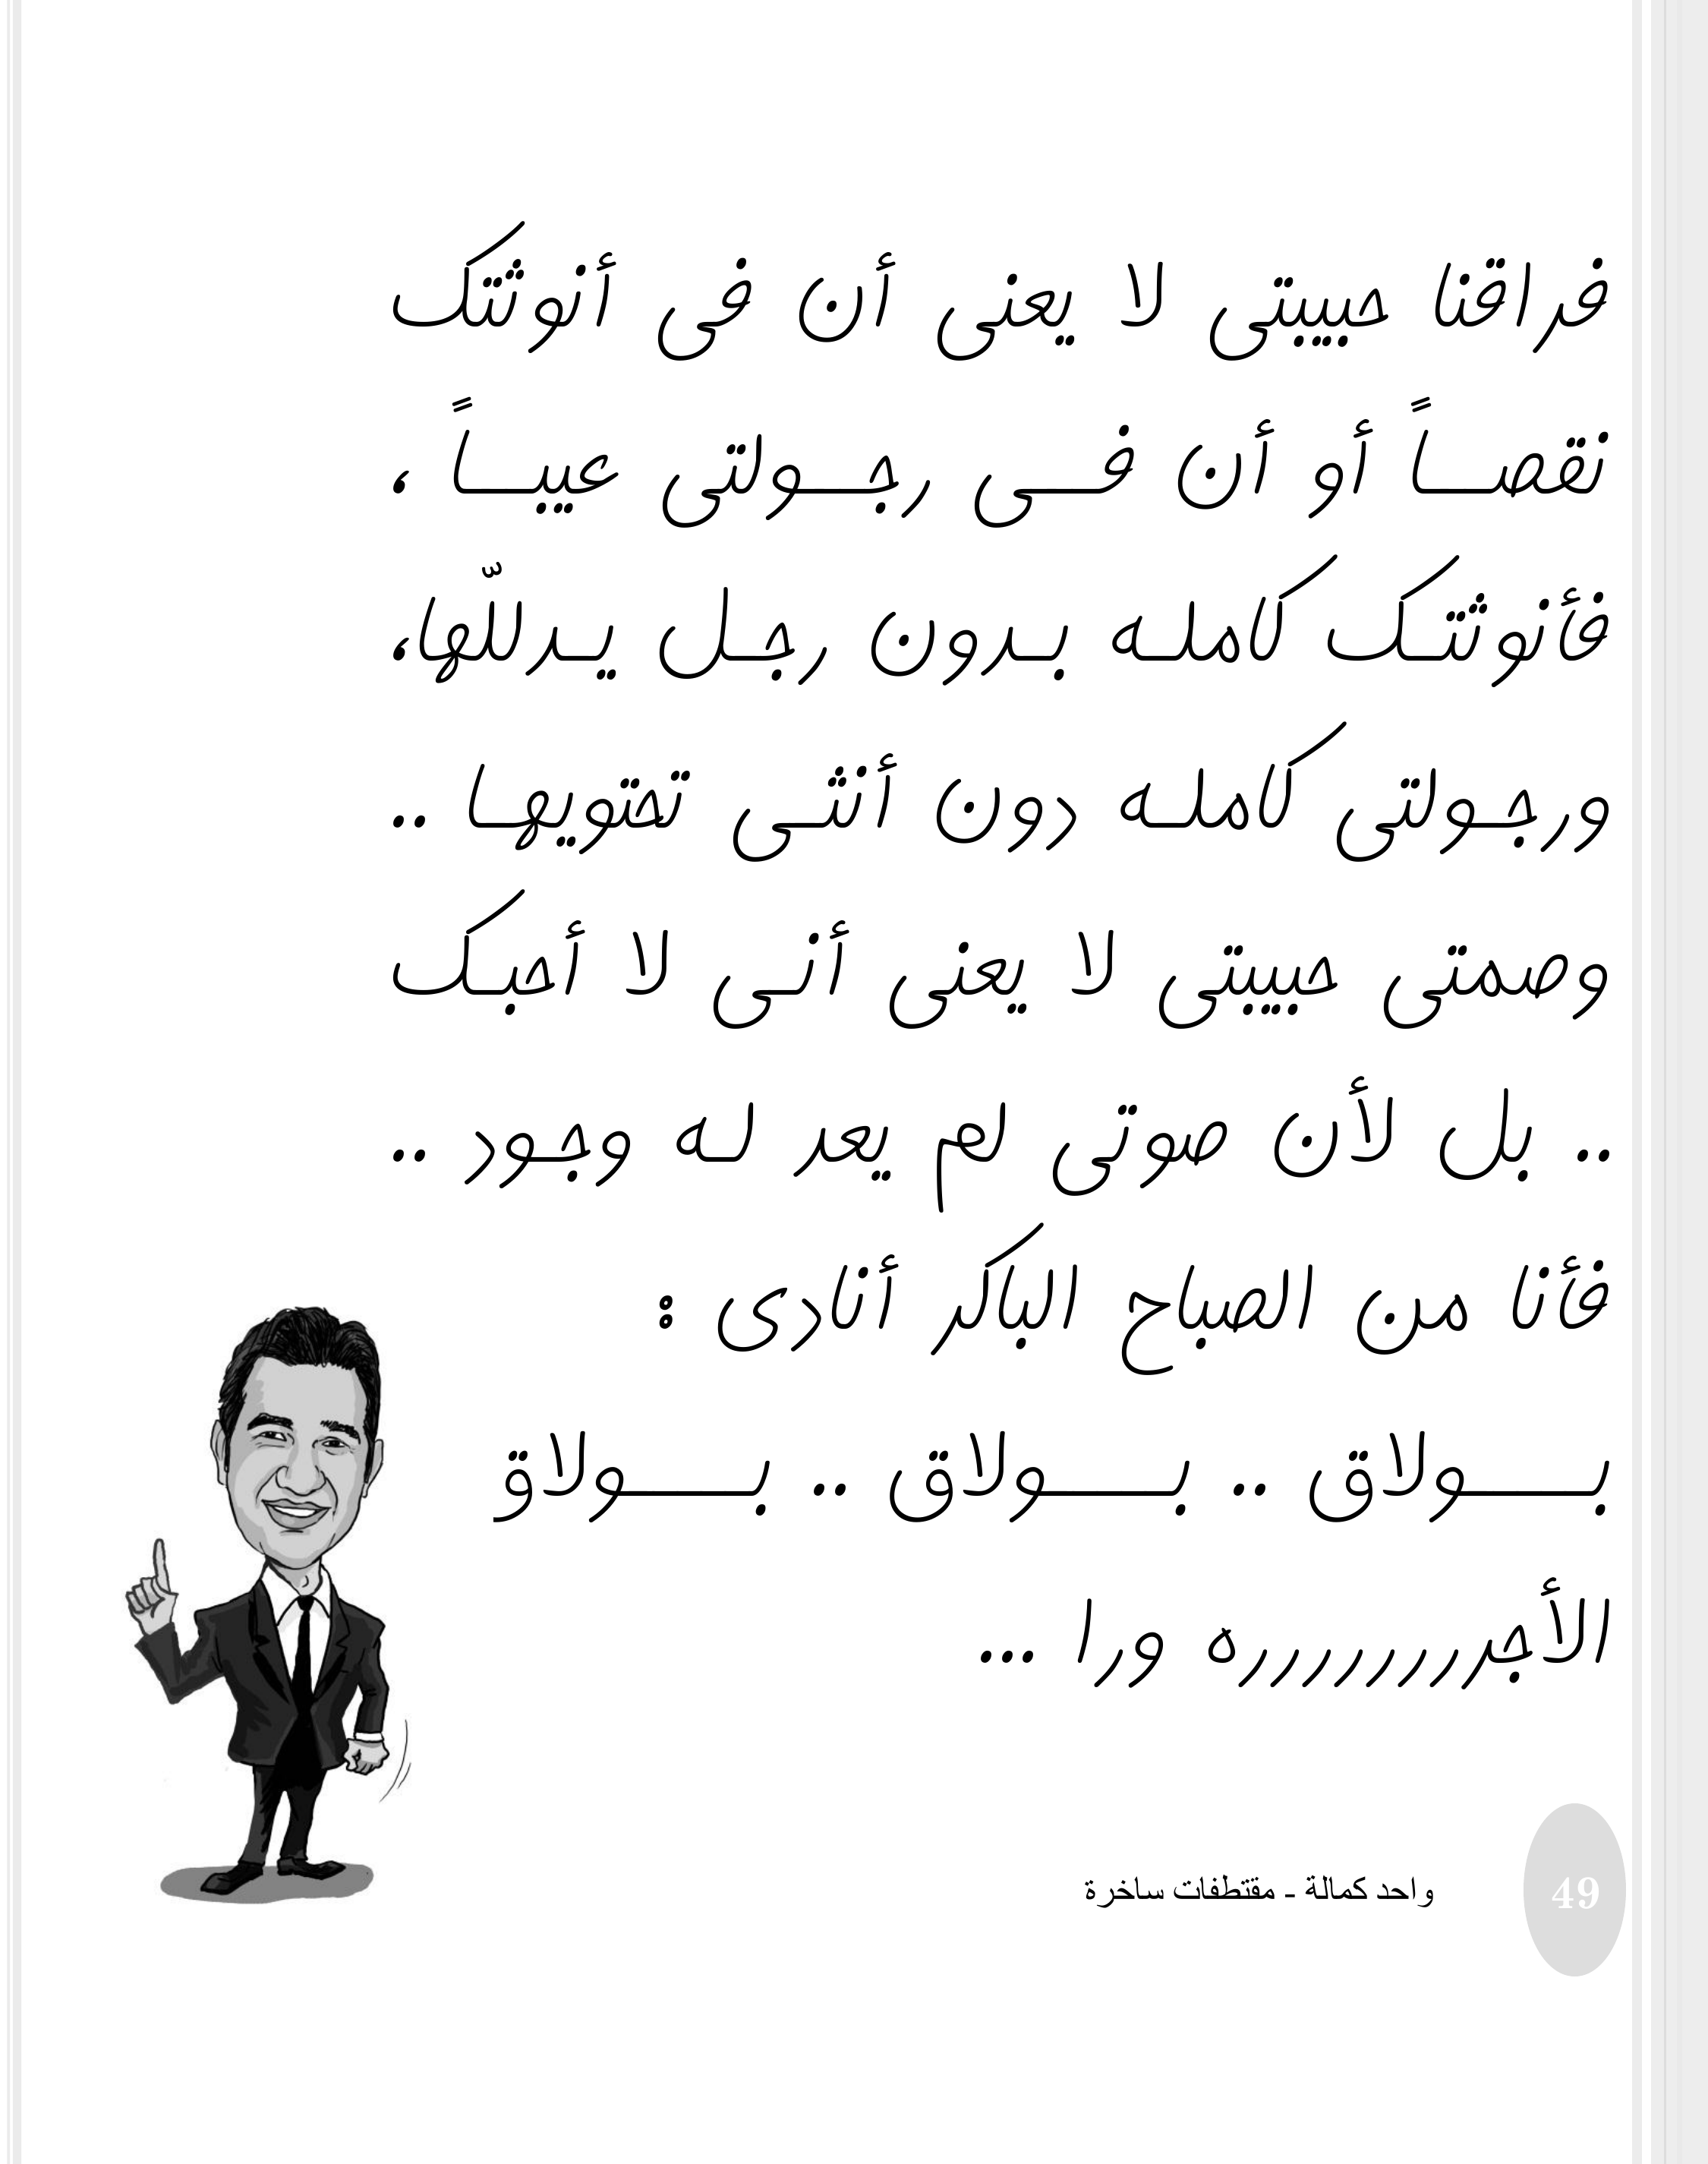 فراقنا حبيبتى لا يعنى أن فى أنوثتك
نقصــاً أو أن فــى رجــولتى عيبــاً ،
فأنوثتـك كاملـه بـدون رجـل يـدللّها،
ورجـولتى كاملـه دون أنثـى تحتويهـا ..
وصمتى حبيبتى لا يعنى أنـى لا أحبـك
.. بل لأن صوتى لم يعد لـه وجـود ..
فأنا من الصباح الباكر أنادى :
بــــولاق .. بــــولاق .. بــــولاق
الأجرررررررره ورا ...
واحد كمالة - مقتطفات ساخرة
49